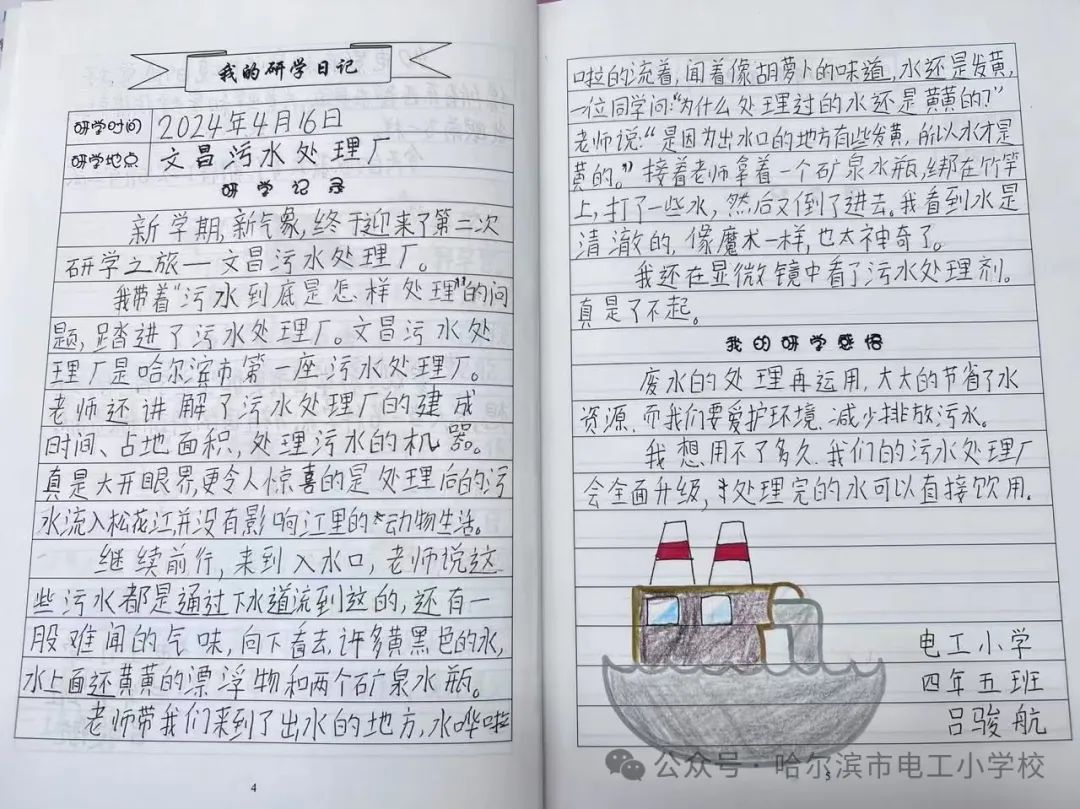 我的研学日记
研学时间 2024年4月16日
研学地点 文昌污水处理厂
研学记录
新学期,新气象,终于迎来了第二次
研学之旅——文昌污水处理厂。
我带着“污水到底是怎样处理”的问
题,踏进了污水处理厂。文昌污水处
理厂是哈尔滨市第一座污水处理厂。
老师还讲解了污水处理厂的建成
时间、占地面积,处理污水的机器。
真是大开眼界,更令人惊喜的是处理后的污
水流入松花江,并没有影响江里的动物生活。
继续前行,来到入水口,老师说这
些污水都是通过下水道流到这的,还有一
股难闻的气味,向下看去,许多黄黑色的水,
水上面还黄黄的漂浮物和两个矿泉水瓶。
老师带我们来到了出水的地方,水哗啦
4
啦的流着,闻着像胡萝卜的味道,水还是发黄,
一位同学问:“为什么处理过的水还是黄黄的?”
老师说:“是因为出水口的地方有些发黄,所以水才是
黄的。”接着老师拿着一个矿泉水瓶,绑在竹竿
上,打了一些水,然后又倒了进去。我看到水是
清澈的,像魔术一样,也太神奇了。
我还在显微镜中看了污水处理剂。
真是了不起。
我的研学感悟
废水的处理再运用,大大的节省了水
资源.而我们要爱护环境.减少排放污水。
我想用不了多久.我们的污水处理厂
会全面升级,处理完的水可以直接饮用.
电工小学
四年五班
吕骏航
5
公众号·哈尔滨市电工小学校